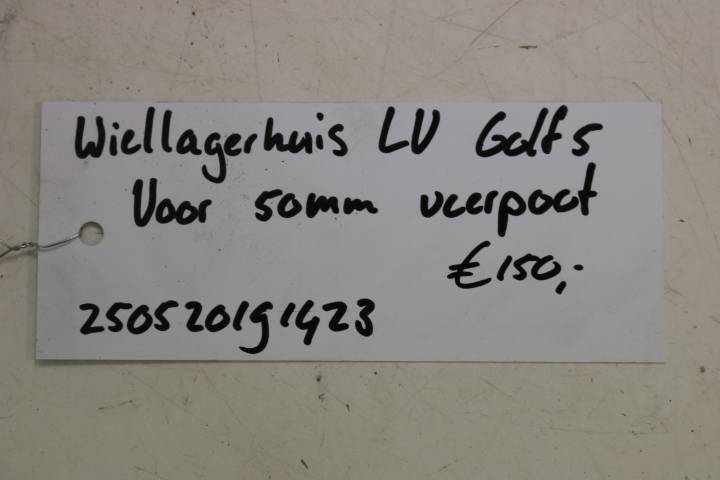 Wiellagerhuis LV Golf 5
Voor 50mm veerpoot
€150,-
250520191423